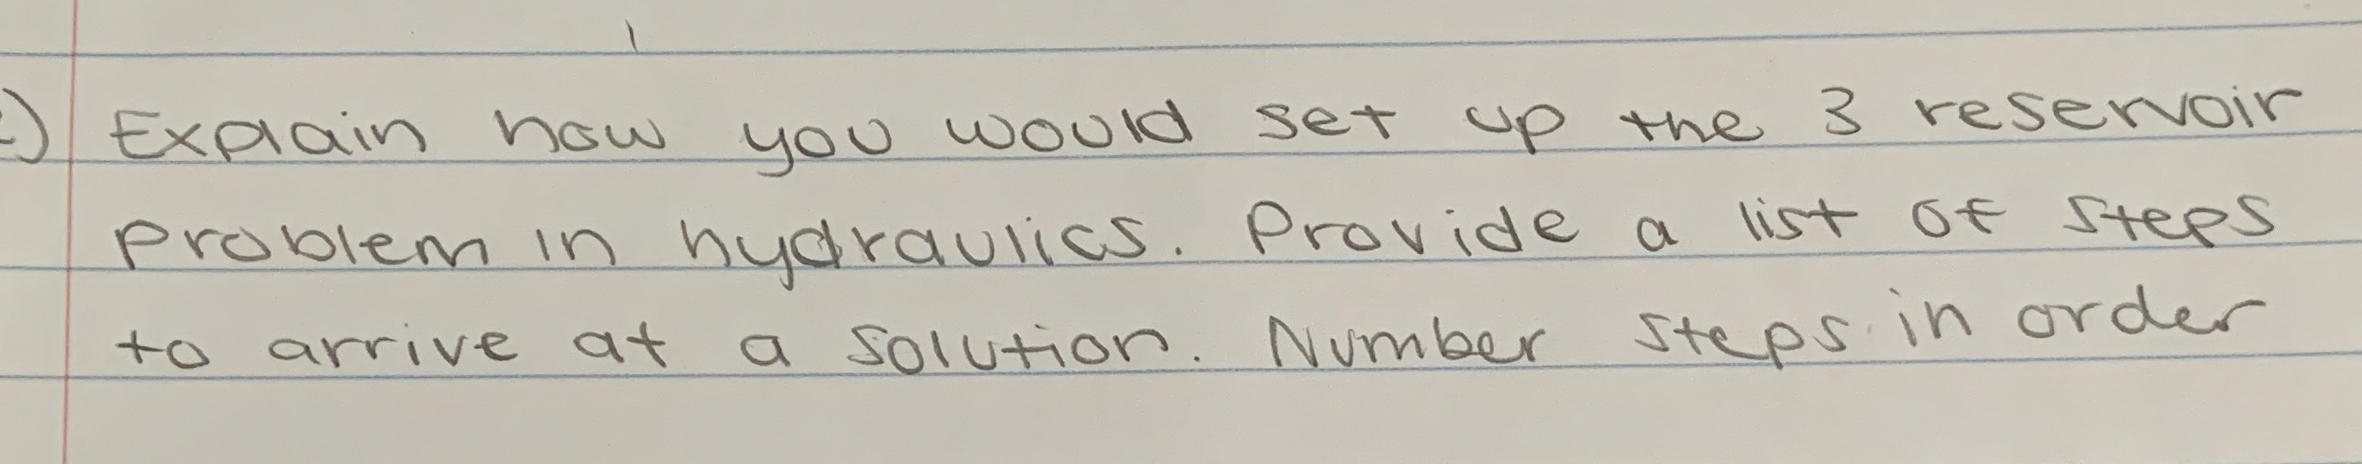 Explain how you would set up the 3 reservoir
problem in hydraulics. Provide a list of steps
to arrive at a solution. Number steps in order